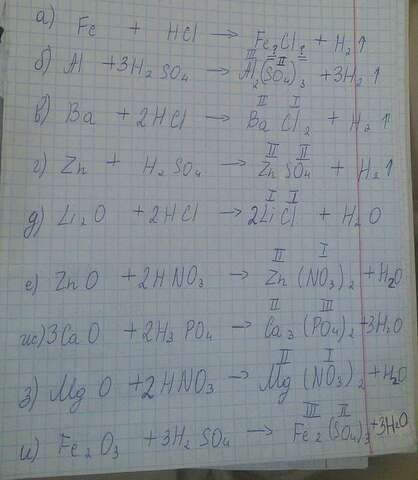 а) Fe + HCl → Fe₂Cl₂ + H₂↑
б) Al + 3H₂SO₄ → Al₂(SO₄)₃ + 3H₂↑
в) Ba + 2HCl → BaCl₂ + H₂↑
г) Zn + H₂SO₄ → ZnSO₄ + H₂↑
д) Li₂O + 2HCl → 2LiCl + H₂O
е) ZnO + 2HNO₃ → Zn(NO₃)₂ + H₂O
ж) 3CaO + 2H₃PO₄ → Ca₃(PO₄)₂ + 3H₂O
з) MgO + 2HNO₃ → Mg(NO₃)₂ + H₂O
и) Fe₂O₃ + 3H₂SO₄ → Fe₂(SO₄)₃ + 3H₂O